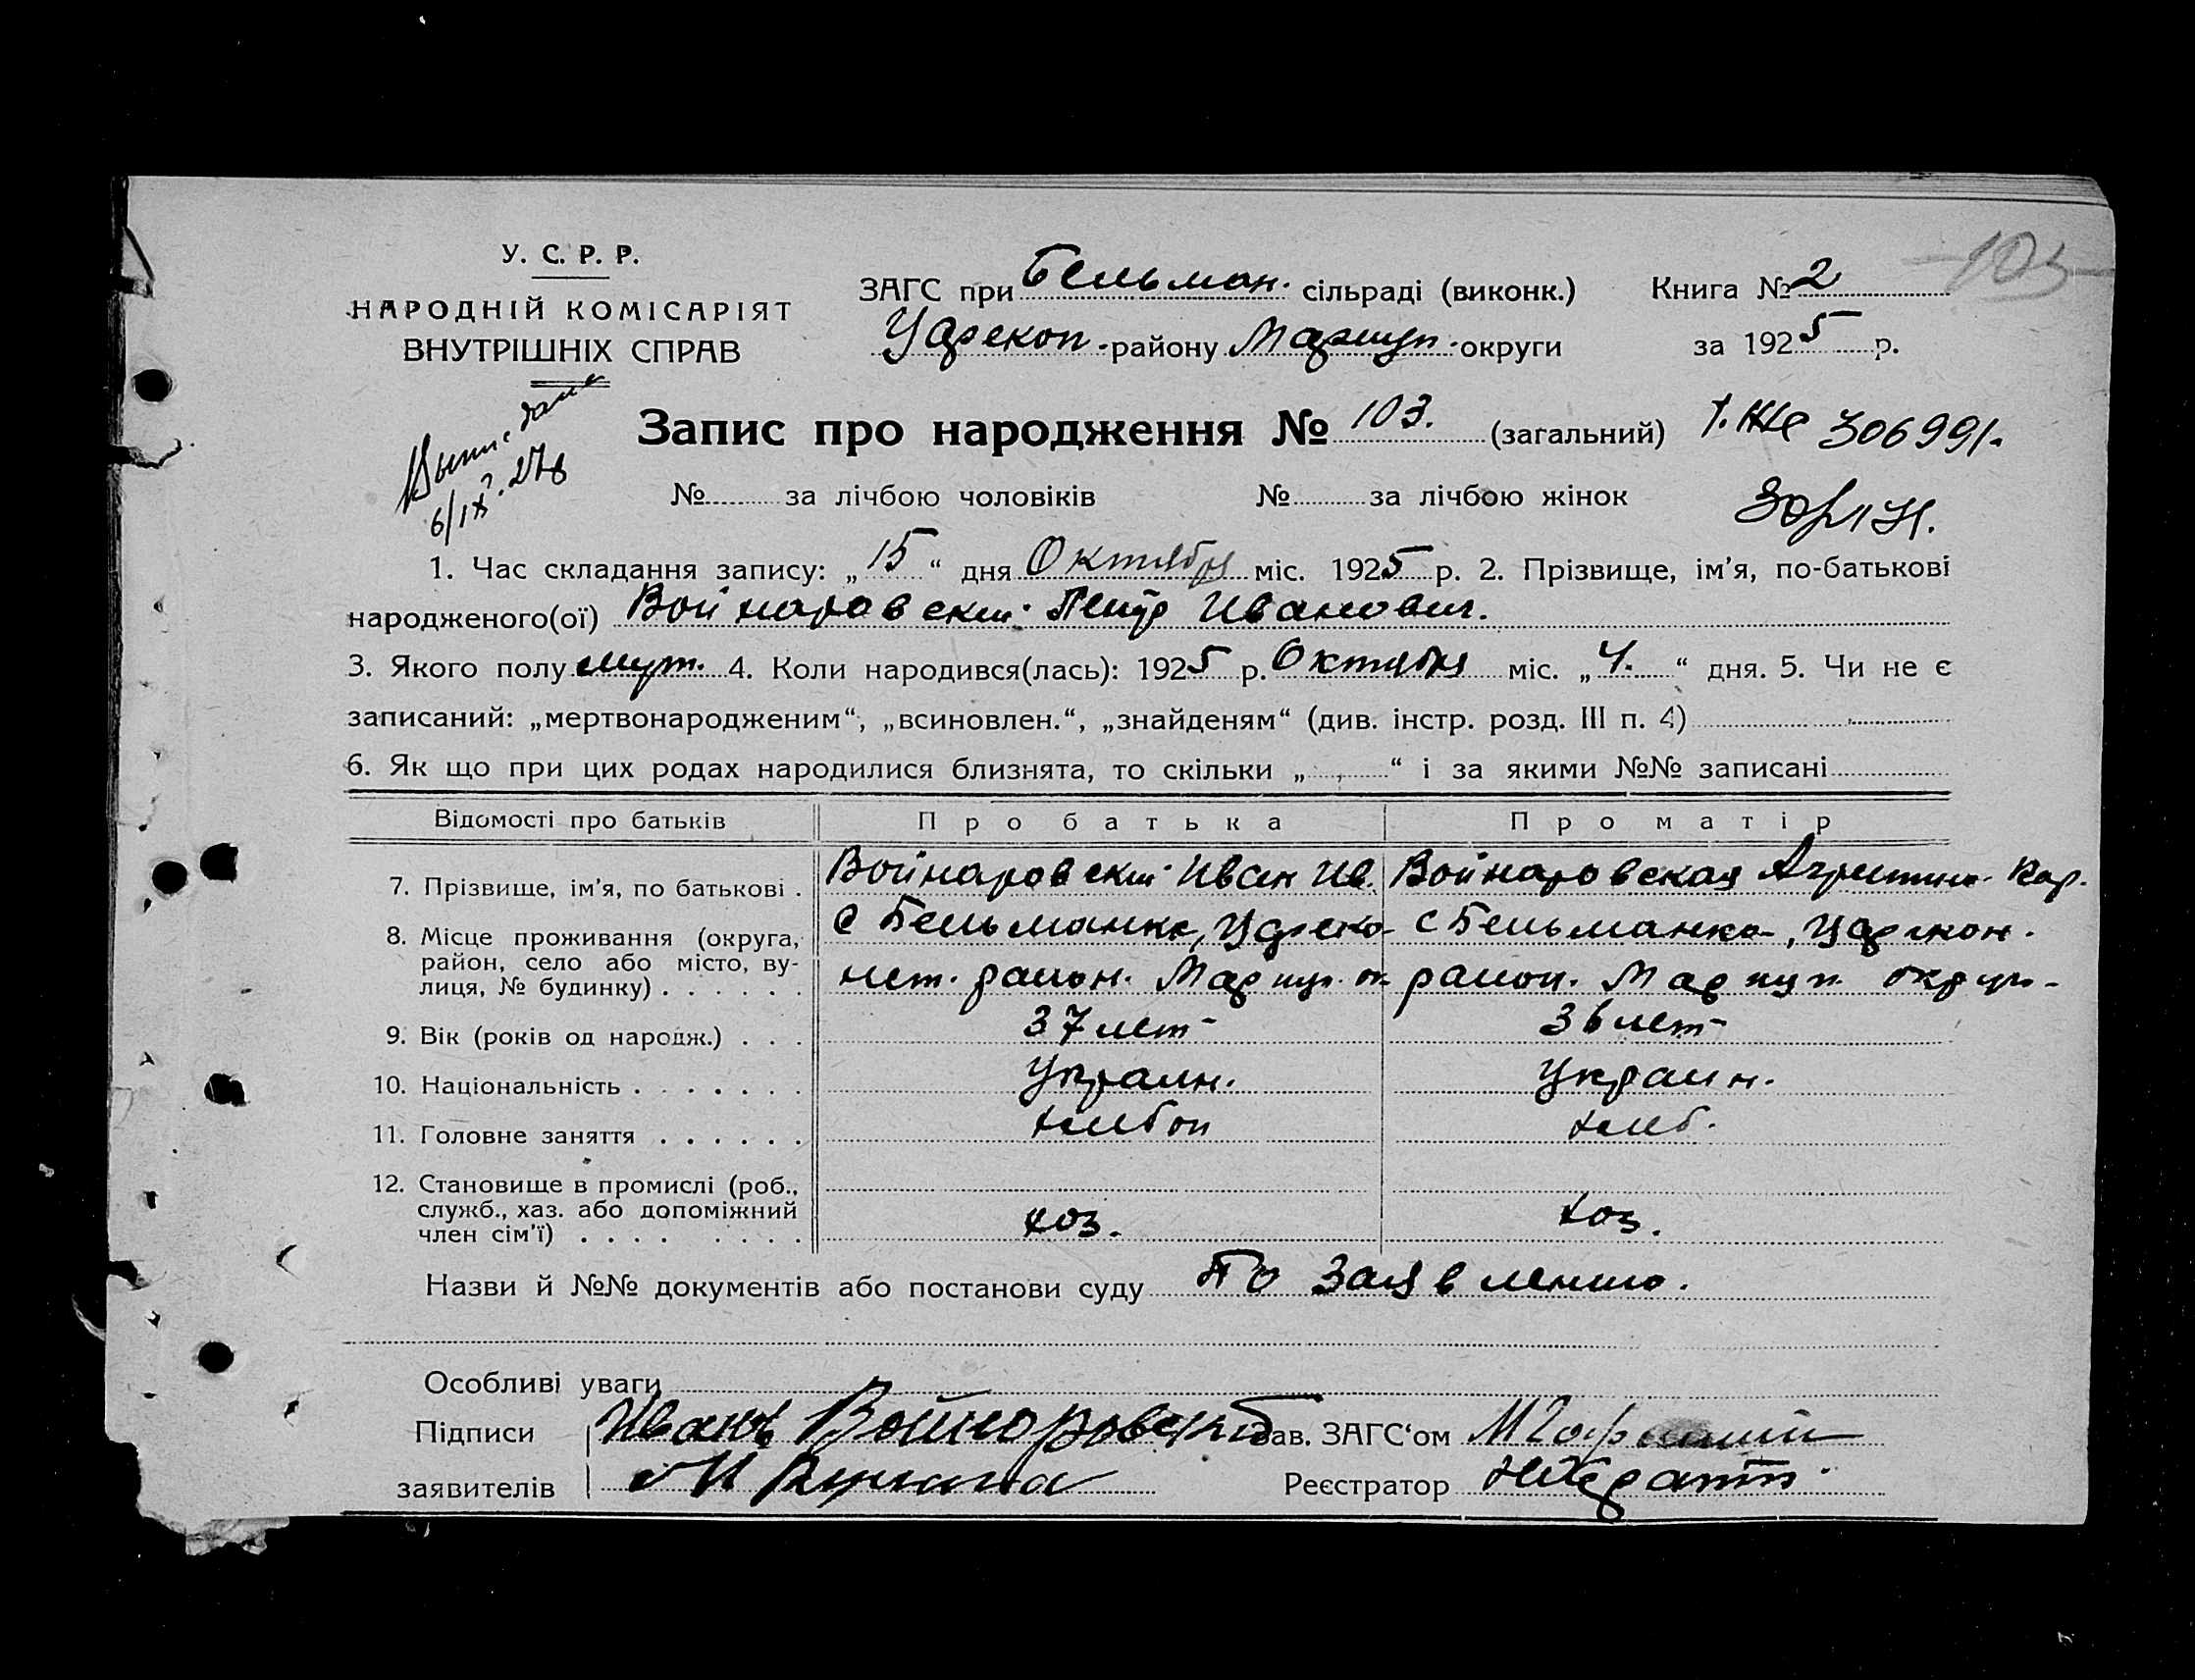 У. С. Р. Р.
НАРОДНІЙ КОМІСАРІЯТ
ВНУТРІШНІХ СПРАВ
ЗАГС при Бельман. сільраді (виконк.) Книга № 2
103
Царекон. району Мариуп. округи за 1925 р.
Запис про народження № 103. (загальний)
306991.
6/IX
№ за лічбою чоловіків № за лічбою жінок
1. Час складання запису: „15“ дня Октября міс. 1925 р. 2. Прізвище, ім’я, по-батькові
народженого(ої) Войнаровский Петр Иванович.
3. Якого полу муж. 4. Коли народився(лась): 1925 р. Октября міс. „4.“ дня. 5. Чи не є
записаний: „мертвонародженим“, „всиновлен.“, „знайденям“ (див. інстр. розд. III п. 4)
6. Як що при цих родах народилися близнята, то скільки „ “ і за якими №№ записані
Відомості про батьків Про батька Про матір
7. Прізвище, ім’я, по батькові . Войнаровский Иван Ив. Войнаровская Кар.
8. Місце проживання (округа, район, село або місто, вулиця, № будинку) . . . . . . с Бельманка, Царекон- с Бельманка, Царекон.
ст. район. Мариуп. о. район. Мариуп. округ.
9. Вік (років од народж.) . . . 37 лет 36 лет
10. Національність . . . . . . . Украин. Украин.
11. Головне заняття . . . . . . хлебоп хлеб.
12. Становище в промислі (роб., служб., хаз. або допоміжний член сім’ї) . . . . . . . . хоз. хоз.
Назви й №№ документів або постанови суду По заявлению.
Особливі уваги
Підписи Иванъ Войнаровскій Зав. ЗАГС‘ом
заявителів Реєстратор